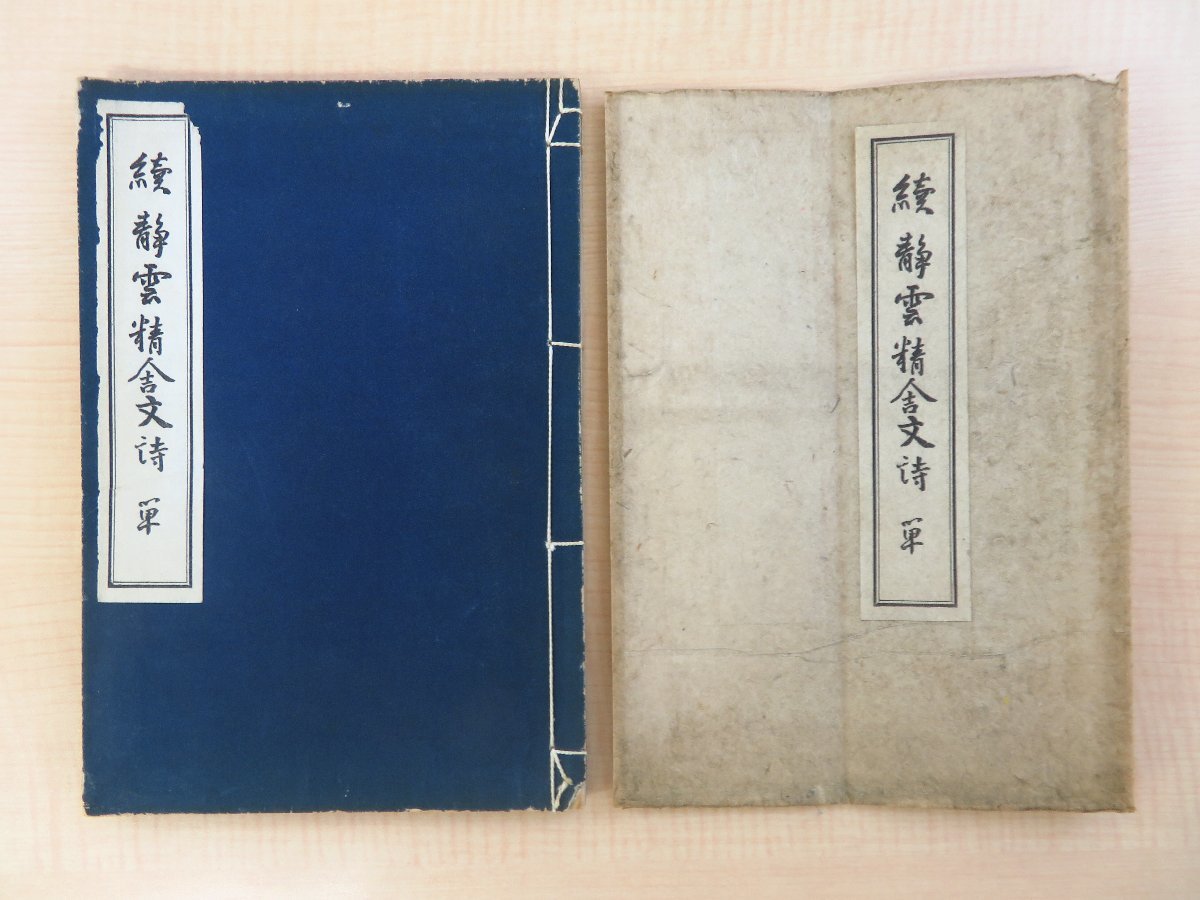 續靜雲精舍文詩 单
續靜雲精舍文詩 单